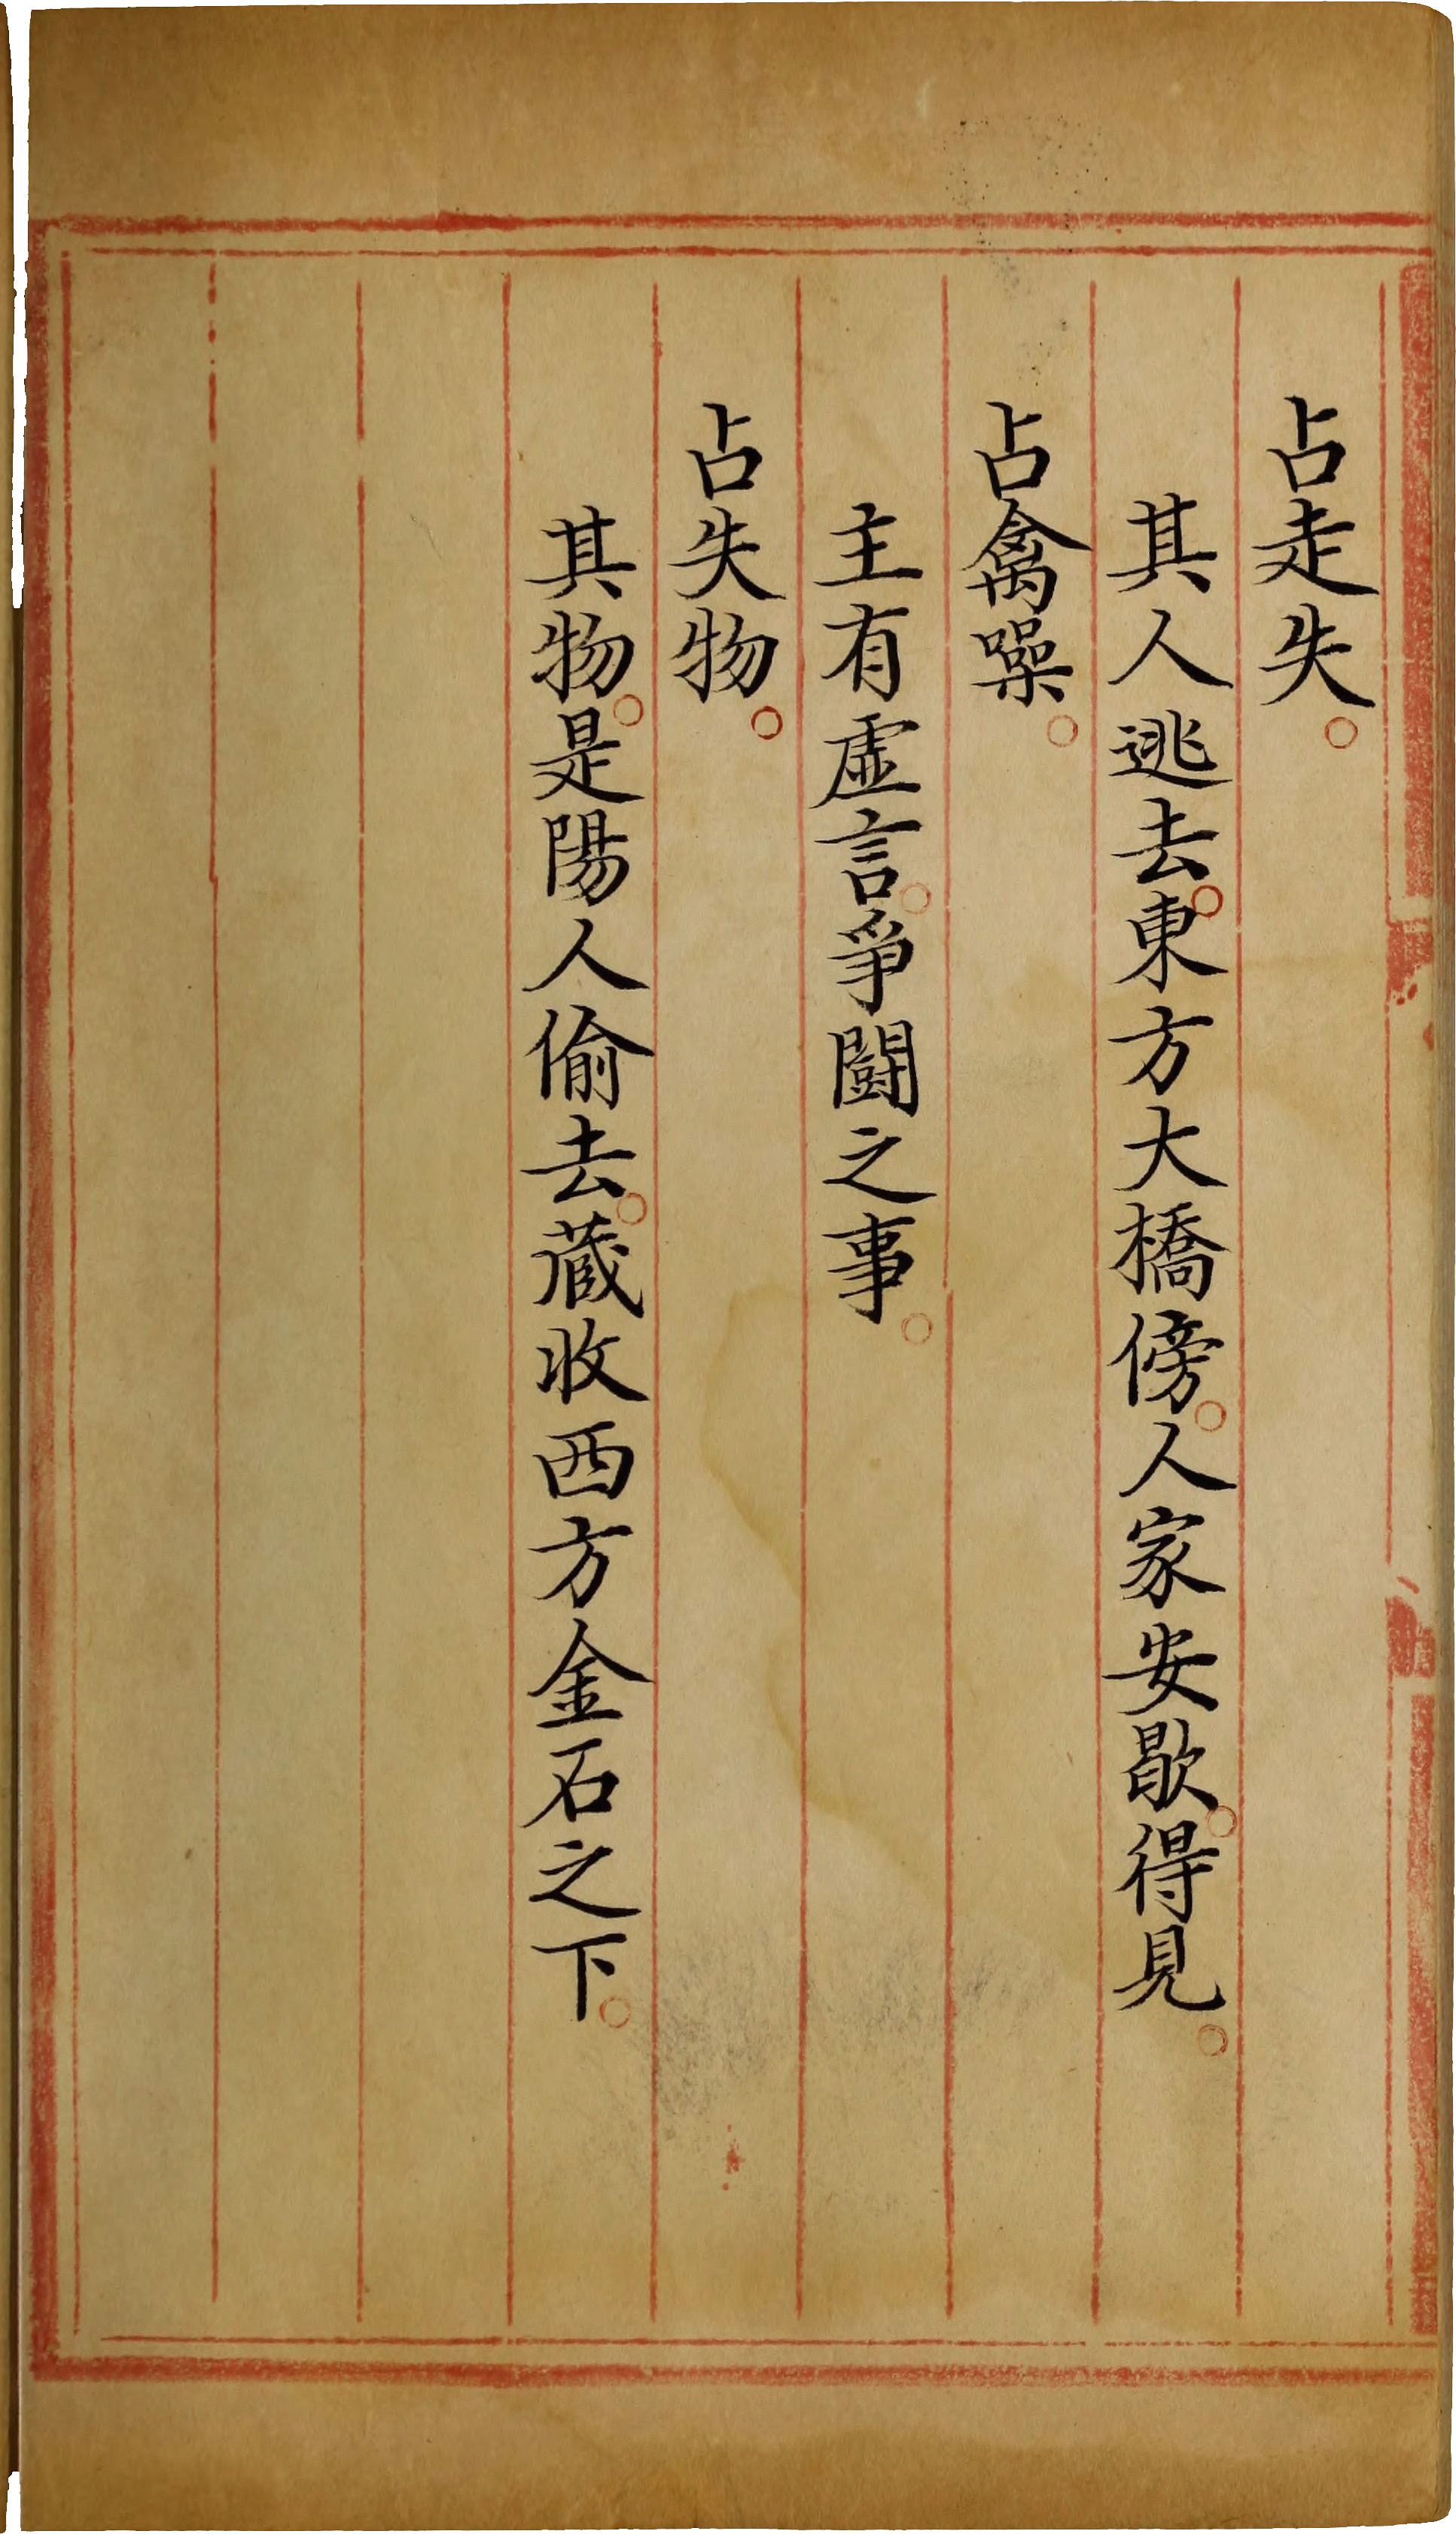 占走失。
其人逃去。東方大橋傍。人家安歇。得見。
占禽噪。
主有虛言。爭鬪之事。
占失物。
其物。是陽人偷去。蔵收西方金石之下。